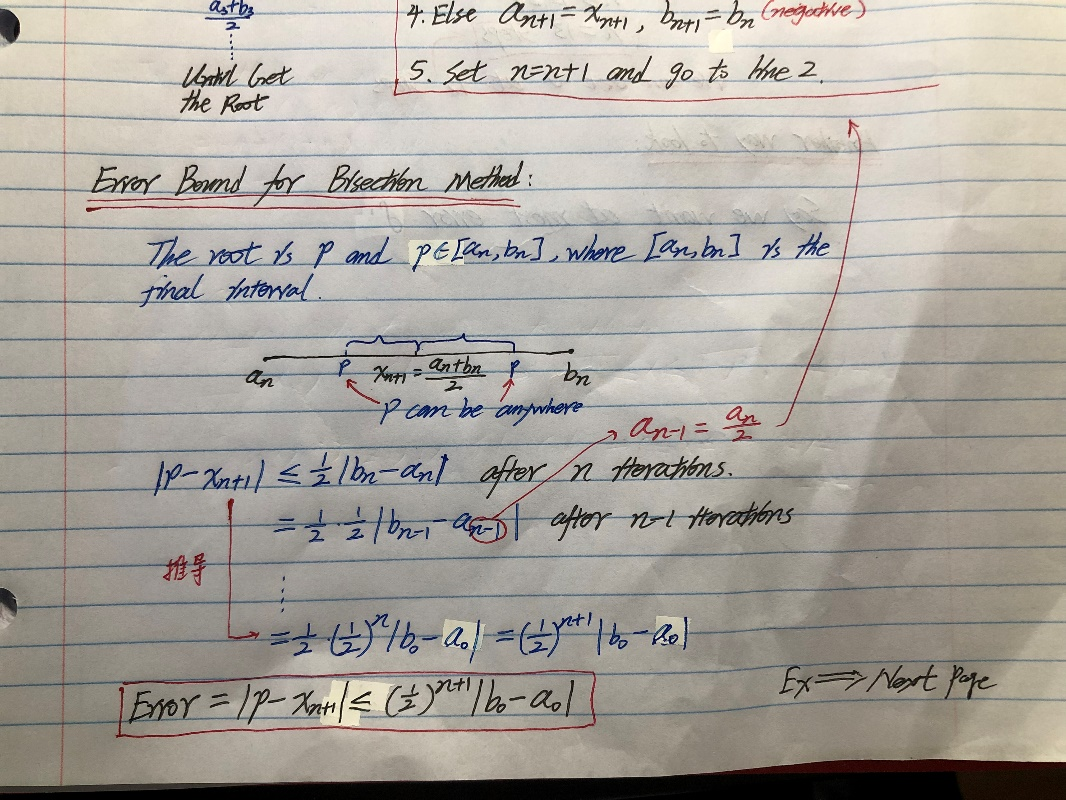 a₃+b₃
2
Until Get
the Root
4. Else aₙ₊₁ = xₙ₊₁, bₙ₊₁ = bₙ (negative)
5. Set n=n+1 and go to line 2.
Error Bound for Bisection Method:
The root is p and p∈[aₙ, bₙ], where [aₙ, bₙ] is the
final interval.
aₙ p xₙ₊₁ = (aₙ+bₙ)/2 p bₙ
p can be anywhere
aₙ₋₁ = aₙ/2
|p-xₙ₊₁| ≤ ½|bₙ-aₙ| after n iterations.
= ½·½|bₙ₋₁-aₙ₋₁| after n-1 iterations
推导
= ½·(½)ⁿ|b₀-a₀| = (½)ⁿ⁺¹|b₀-a₀|
Error = |p-xₙ₊₁| ≤ (½)ⁿ⁺¹|b₀-a₀|
Ex ⟹ Next Page